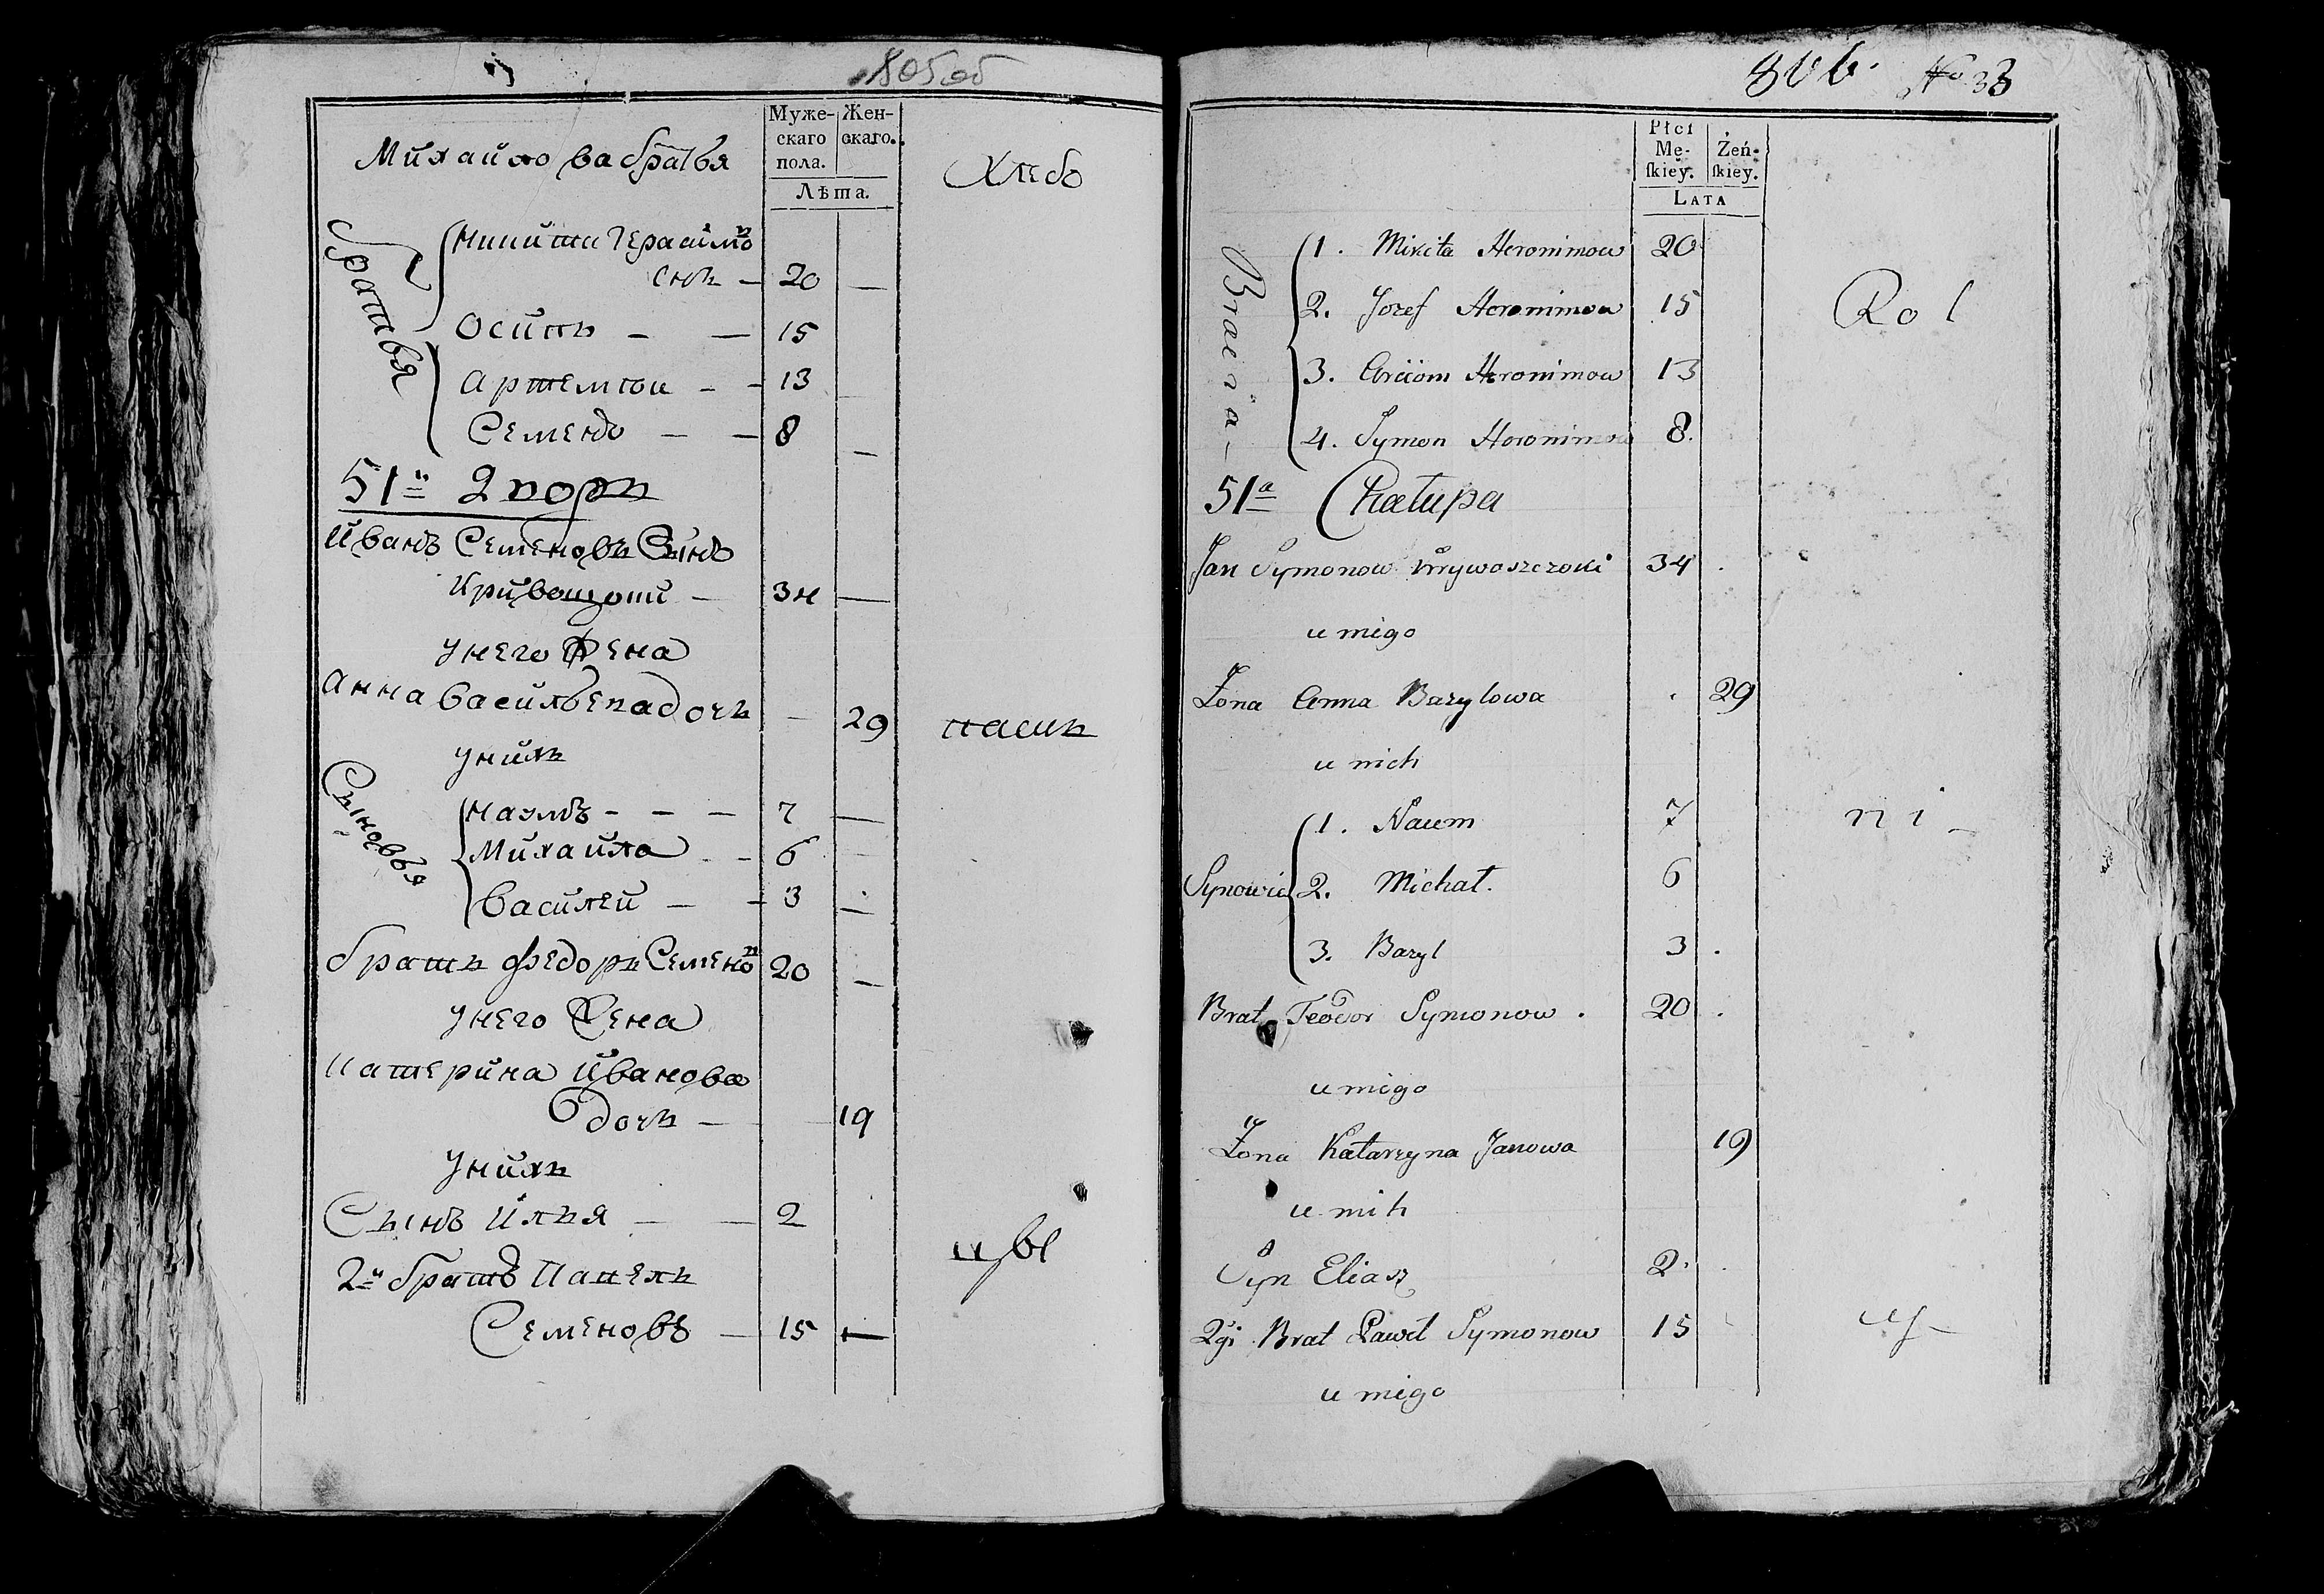 805 об
Муже-
скаго
пола.
Жен-
скаго.
Лѣта.
Михайло ва братья
Хлебо
братья
Никита Герасимо в
снъ — 20 —
Осипъ — — 15
Артемiи — — 13
Семенъ — — 8 —
51й Дворъ
Иванъ Семеновъ Сынъ
Кривощоки — 34 —
унего жена
Анна Васильева дочь — 29
паш
унихъ
Сыновья
Наумъ - - — 7 —
Михайла - - 6 —
Василей — — 3 —
братъ Федоръ Семено в 20 —
унего Жена
Катерина Иванова
дочь — — 19
Унихъ
Сынъ Илья — — 2
цы
2й братъ Павелъ
Семеновъ — 15 —
806. No 33
Płci
Mę-
ſkiey.
Żeń-
ſkiey.
LATA
Bracia
1. Mikita Heronimow 20
2. Jozef Heronimow 15
Rol
3. Arciom Heronimow 13
4. Symon Heronimow 8.
51a Chałupa
Jan Symonow Krywoszczoki 34 .
u niego
Żona Anna Bazylowa . 29
u nich
Synowie
1. Naum 7
ni -
2. Michał. 6
3. Bazyl 3 .
Brat Teodor Symonow . 20 .
u niego
Żona Katarzyna Janowa 19
u nih
Syn Eliasz 2. .
2gi Brat Paweł Symonow 15
cy -
u niego